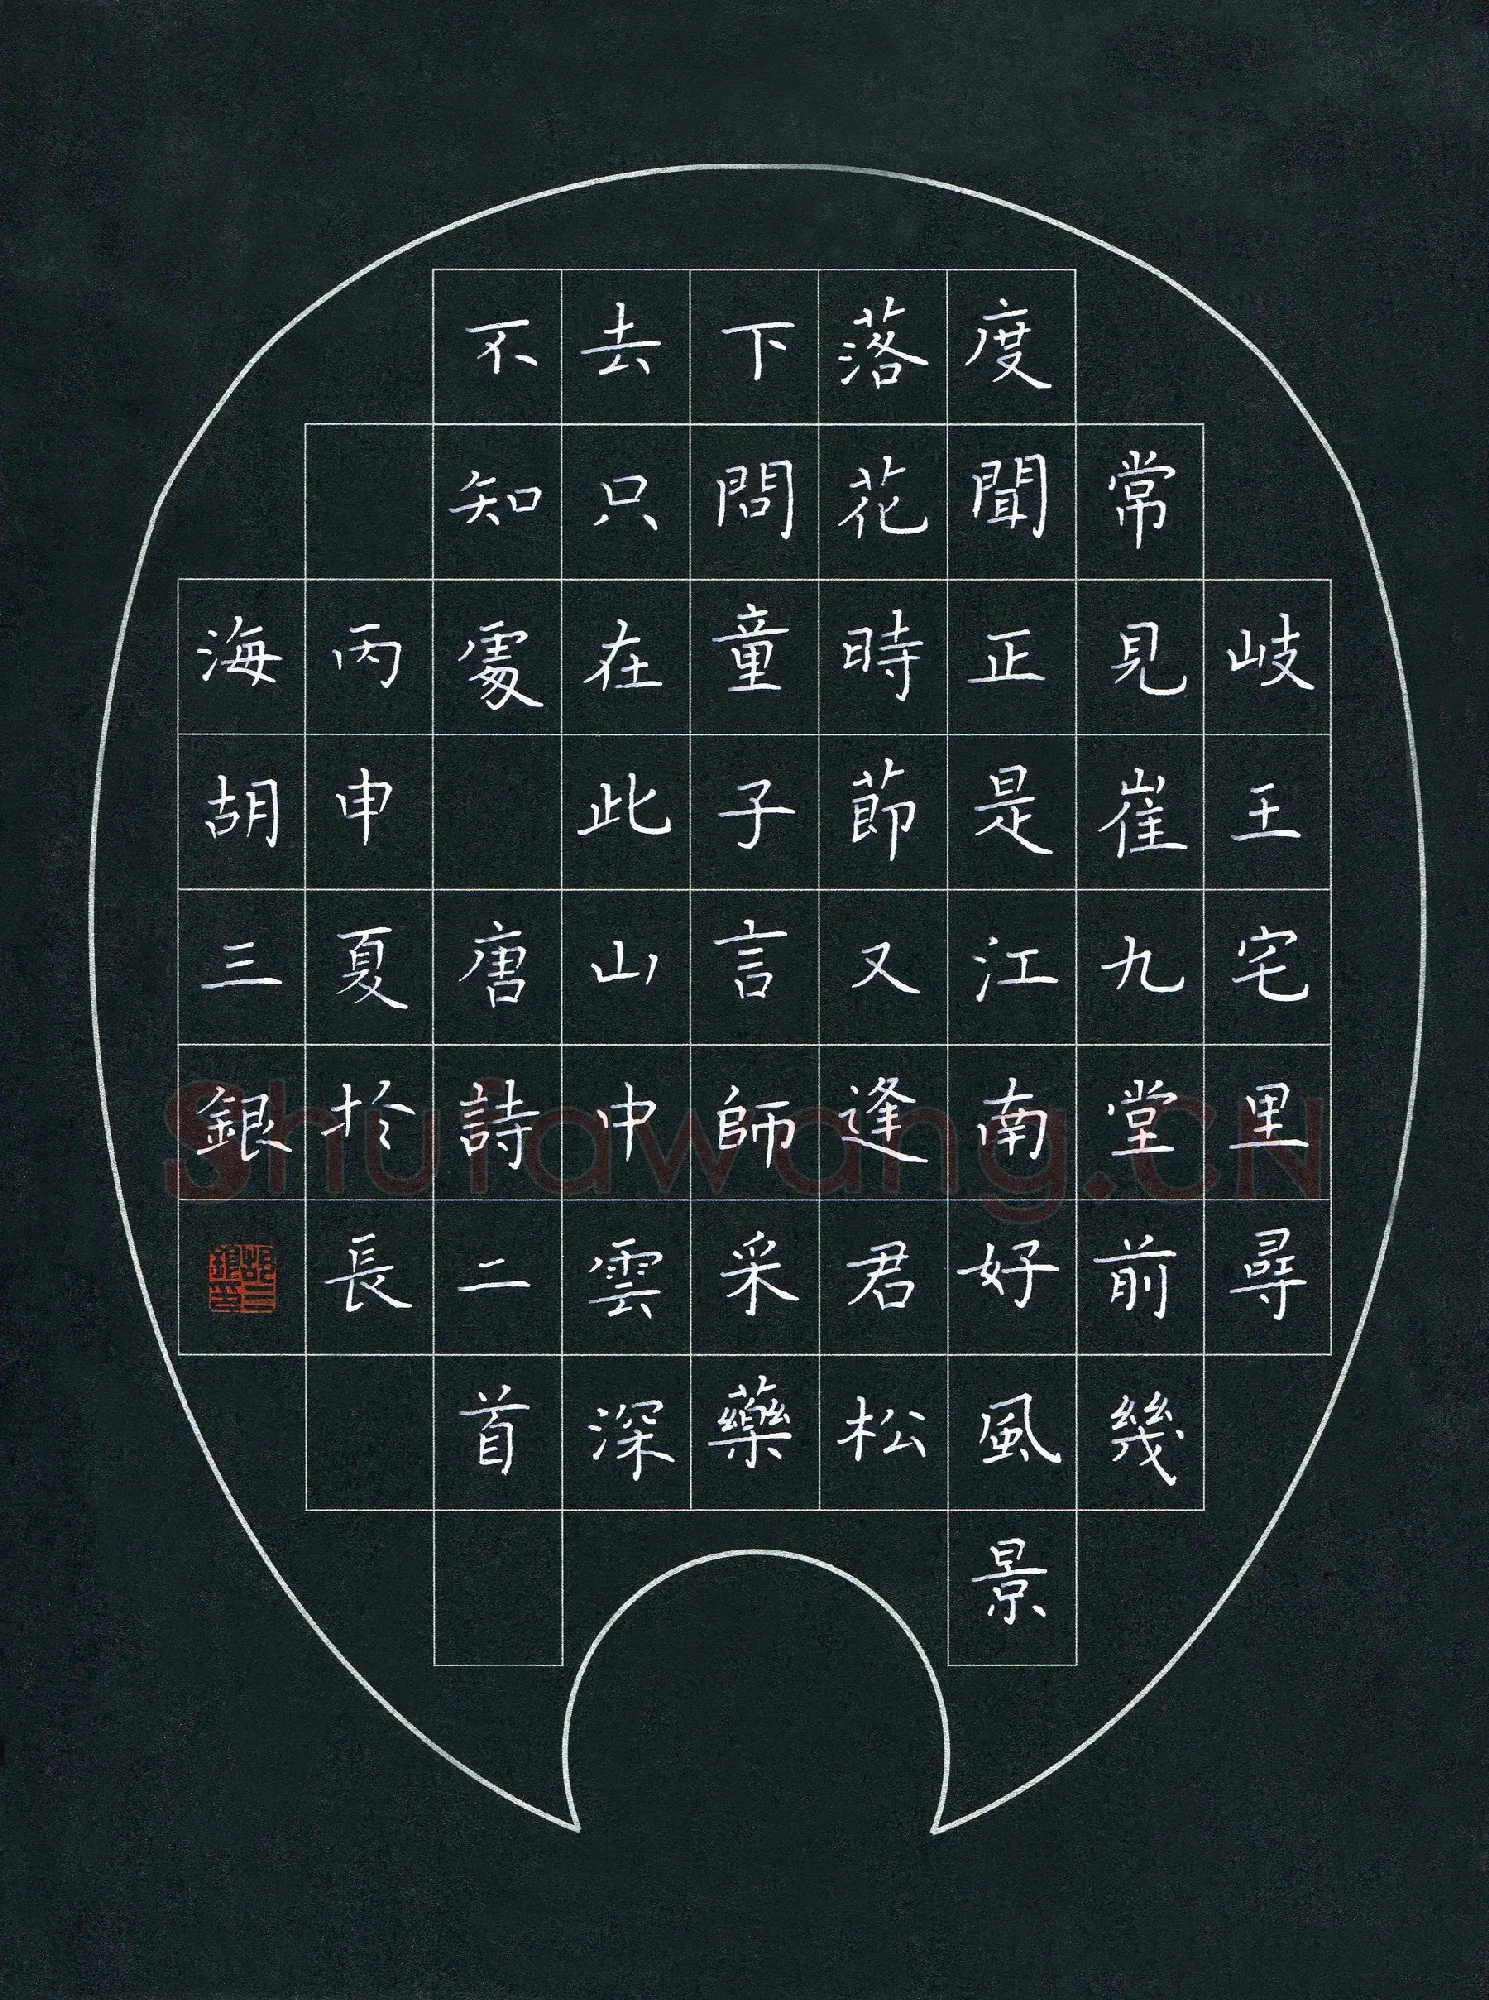 岐王宅里尋
常見崔九堂前幾
度聞正是江南好風景
落花時節又逢君松
下問童子言師采藥
去只在此山中雲深
不知處唐詩二首
丙申夏於長
海胡三銀
胡三銀印
Shufawang.CN